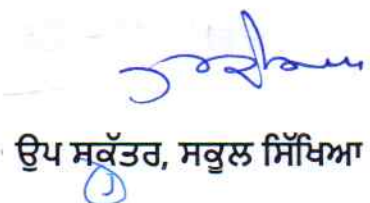 ਉਪ ਸਕੱਤਰ, ਸਕੂਲ ਸਿੱਖਿਆ